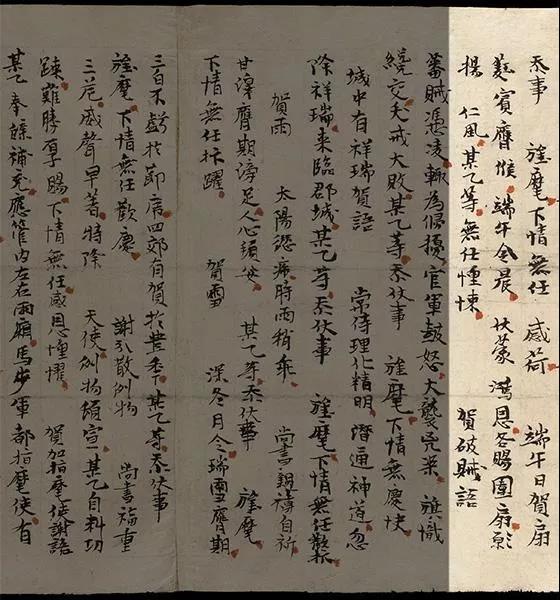 忝事 旌麾下情無任 感荷 端午日賀扇
蕤賓膺候端午令晨 伏蒙 鴻恩各賜團扇願
揚 仁風某乙等無任惶悚 賀破賊語
蕃賊憑凌輙為侵擾官軍鼓怒大襲兇渠旌
交犬戎大敗某乙等忝伏事 旌麾下情無慶快
城中有祥瑞賀語 常侍理化精明潛通神道忽
除祥瑞来臨郡城某乙等忝伏事 旌麾下情無任歡抃
賀雨 太陽愆席時雨稍乖 尚書親禱自祈
甘澤膺期滂足人心頓安 某乙等忝伏事 旌麾
下情無任抃躍 賀雪 深冬月令瑞雪膺期
三白不虧於節席四郊有賀於豊年某乙等忝伏事
旌麾下情無任歡慶 謝 散例物 尚書福重
三危威聲早著特降 天使例物頒宣某乙自料功
踈難勝厚賜下情無任感恩惶懼 賀加指麾使謝語
某乙奉牒補充應管內左右兩廂馬步軍都指麾使有